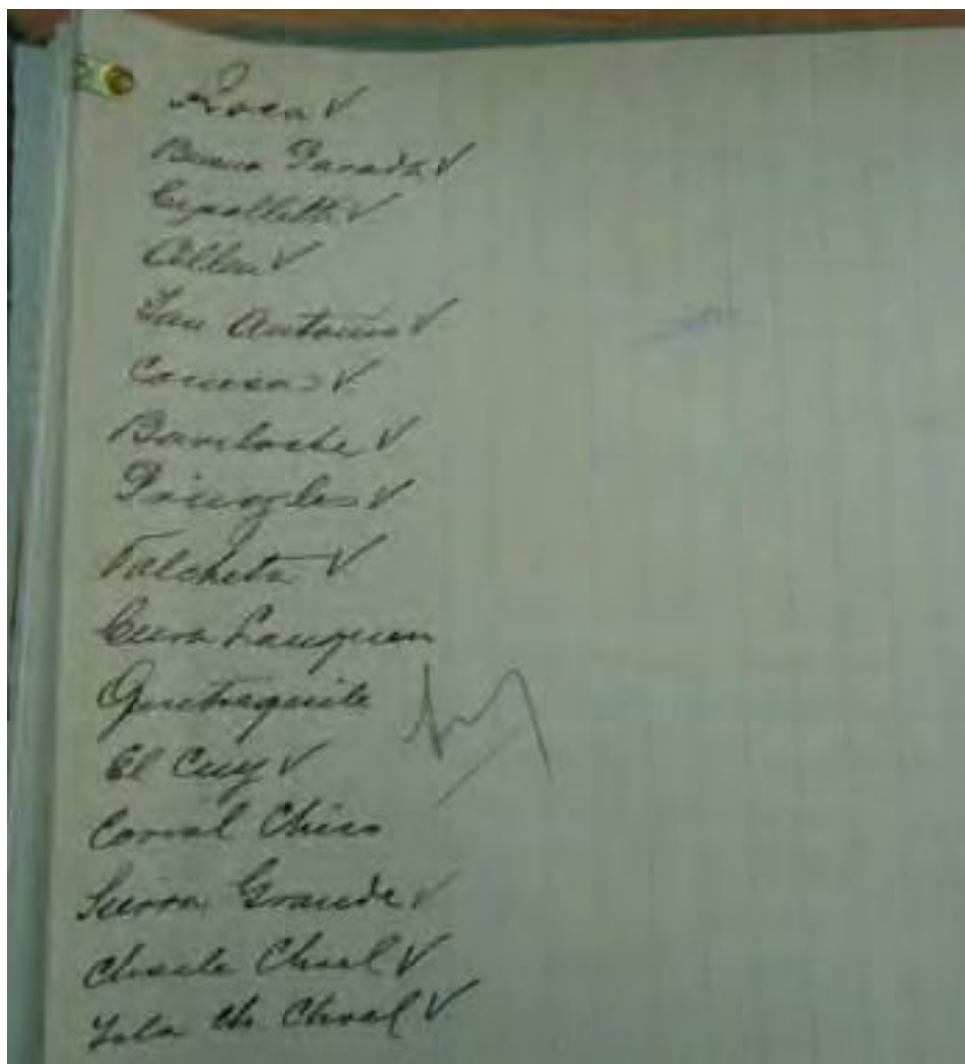 Roca V
Buena Parada V
Cipolletti V
Collon V
San Antonio V
Conesa V
Bariloche V
Pringles V
Valcheta V
Cura Lauquen
Quetrequile
El Cuy V
Corral Chico
Sierra Grande V
Choele Choel V
Isla Ch. Choel V